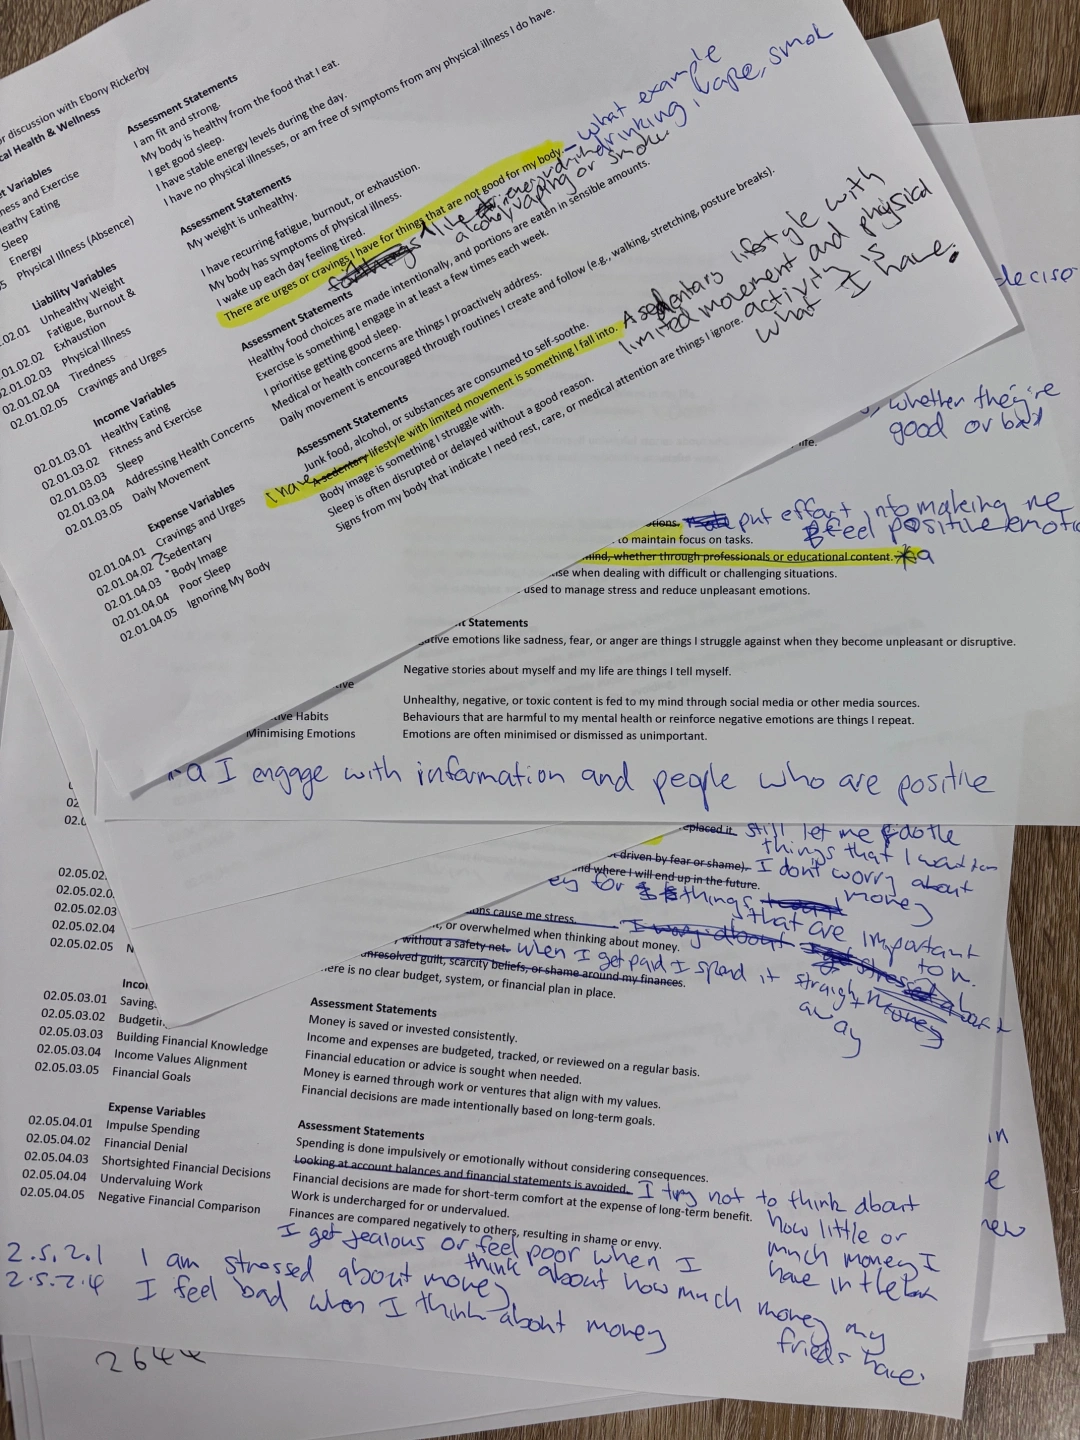 or discussion with Ebony Rickerby
cal Health & Wellness
et Variables
ness and Exercise
ealthy Eating
Sleep
Energy
Physical Illness (Absence)
Assessment Statements
I am fit and strong.
My body is healthy from the food that I eat.
I get good sleep.
I have stable energy levels during the day.
I have no physical illnesses, or am free of symptoms from any physical illness I do have.
Liability Variables
.02.01 Unhealthy Weight
02.01.02.02 Fatigue, Burnout & Exhaustion
02.01.02.03 Physical Illness
02.01.02.04 Tiredness
02.01.02.05 Cravings and Urges
Assessment Statements
My weight is unhealthy.
I have recurring fatigue, burnout, or exhaustion.
My body has symptoms of physical illness.
I wake up each day feeling tired.
There are urges or cravings I have for things that are not good for my body. – what example
drinking, vape, smok
like
alcohol, vaping or smoke.
Income Variables
02.01.03.01 Healthy Eating
02.01.03.02 Fitness and Exercise
02.01.03.03 Sleep
02.01.03.04 Addressing Health Concerns
02.01.03.05 Daily Movement
Assessment Statements
Healthy food choices are made intentionally, and portions are eaten in sensible amounts.
Exercise is something I engage in at least a few times each week.
I prioritise getting good sleep.
Medical or health concerns are things I proactively address.
Daily movement is encouraged through routines I create and follow (e.g., walking, stretching, posture breaks).
Expense Variables
02.01.04.01 Cravings and Urges
02.01.04.02 ? Sedentary
02.01.04.03 Body Image
02.01.04.04 Poor Sleep
02.01.04.05 Ignoring My Body
Assessment Statements
Junk food, alcohol, or substances are consumed to self-soothe.
I have A sedentary lifestyle with limited movement is something I fall into.
Body image is something I struggle with.
Sleep is often disrupted or delayed without a good reason.
Signs from my body that indicate I need rest, care, or medical attention are things I ignore.
A sedentary lifestyle with
limited movement and physical
activity is
what I have.
deciso
whether they're
good or bad
life.
otions. put effort into making me
feel positive emotio
to maintain focus on tasks.
mind, whether through professionals or educational content. *a
ise when dealing with difficult or challenging situations.
used to manage stress and reduce unpleasant emotions.
nt Statements
ative emotions like sadness, fear, or anger are things I struggle against when they become unpleasant or disruptive.
Negative stories about myself and my life are things I tell myself.
tive
Unhealthy, negative, or toxic content is fed to my mind through social media or other media sources.
tive Habits Behaviours that are harmful to my mental health or reinforce negative emotions are things I repeat.
Minimising Emotions Emotions are often minimised or dismissed as unimportant.
a I engage with information and people who are positive
02
02.0
eplaced it. still let me do the
things that I want
t driven by fear or shame). I don't worry about
money
nd where I will end up in the future.
ey for things
that are important
to m.
02.05.02.
02.05.02.0
02.05.02.03
02.05.02.04
02.05.02.05 N
ons cause me stress. I worry about
t, or overwhelmed when thinking about money.
without a safety net. When I get paid I spend it straight
away
unresolved guilt, scarcity beliefs, or shame around my finances.
here is no clear budget, system, or financial plan in place.
Incom
02.05.03.01 Saving
02.05.03.02 Budgetin
02.05.03.03 Building Financial Knowledge
02.05.03.04 Income Values Alignment
02.05.03.05 Financial Goals
Assessment Statements
Money is saved or invested consistently.
Income and expenses are budgeted, tracked, or reviewed on a regular basis.
Financial education or advice is sought when needed.
Money is earned through work or ventures that align with my values.
Financial decisions are made intentionally based on long-term goals.
Expense Variables
02.05.04.01 Impulse Spending
02.05.04.02 Financial Denial
02.05.04.03 Shortsighted Financial Decisions
02.05.04.04 Undervaluing Work
02.05.04.05 Negative Financial Comparison
Assessment Statements
Spending is done impulsively or emotionally without considering consequences.
Looking at account balances and financial statements is avoided. I try not to think about
how little or
much money I
have in the
Financial decisions are made for short-term comfort at the expense of long-term benefit.
Work is undercharged for or undervalued.
Finances are compared negatively to others, resulting in shame or envy.
I get jealous or feel poor when I
think about how much money my
frieds have.
2.5.2.1 I am stressed about money
2.5.2.4 I feel bad when I think about money
in
e
new
2644